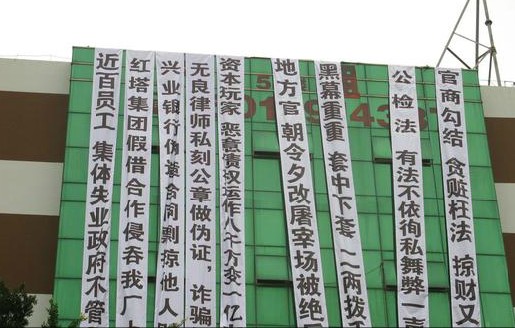 近百员工 集体失业政府不管
红塔集团假借合作侵吞我厂
兴业银行伪造合同剽掠他人
无良律师私刻公章做伪证，诈骗
资本玩家 恶意债权运作八千万变一亿
地方官 朝令夕改屠宰场被绝
黑幕重重 套中下套 一二两拨千
公检法 有法不依徇私舞弊一
官商勾结 贪赃枉法 掠财又